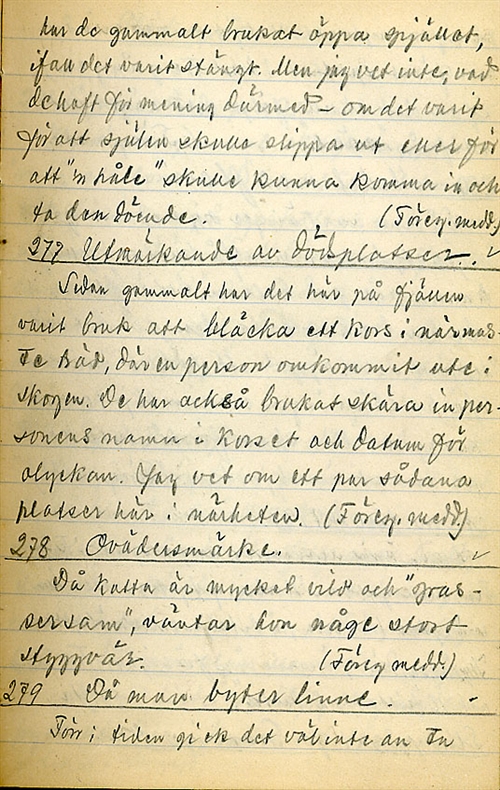 har de gammalt brukat öppa spjället,
ifall det varit stängt. Men jag vet inte, vad
de haft för mening därmed – om det varit
för att själen skulle slippa ut eller för
att "'n håle" skulle kunna komma in och
ta den döende. (Föreg. medd.)
277 Utmärkande av dödsplatser. √
Sedan gammalt har det här på fjällen
varit bruk att bläcka ett kors i närmas-
te träd, där en person omkommit ute i
skogen. De har också brukat skära in per-
sonens namn i korset och datum för
olyckan. Jag vet om ett par sådana
platser här i närheten. (Föreg. medd.)
278 Ovädersmärke. √
Då katta är mycket vild och "gras-
sersam", väntar hon någe stort
styggvär. (Föreg medd.)
279 Då man byter linne. -
Förr i tiden gick det väl inte an te